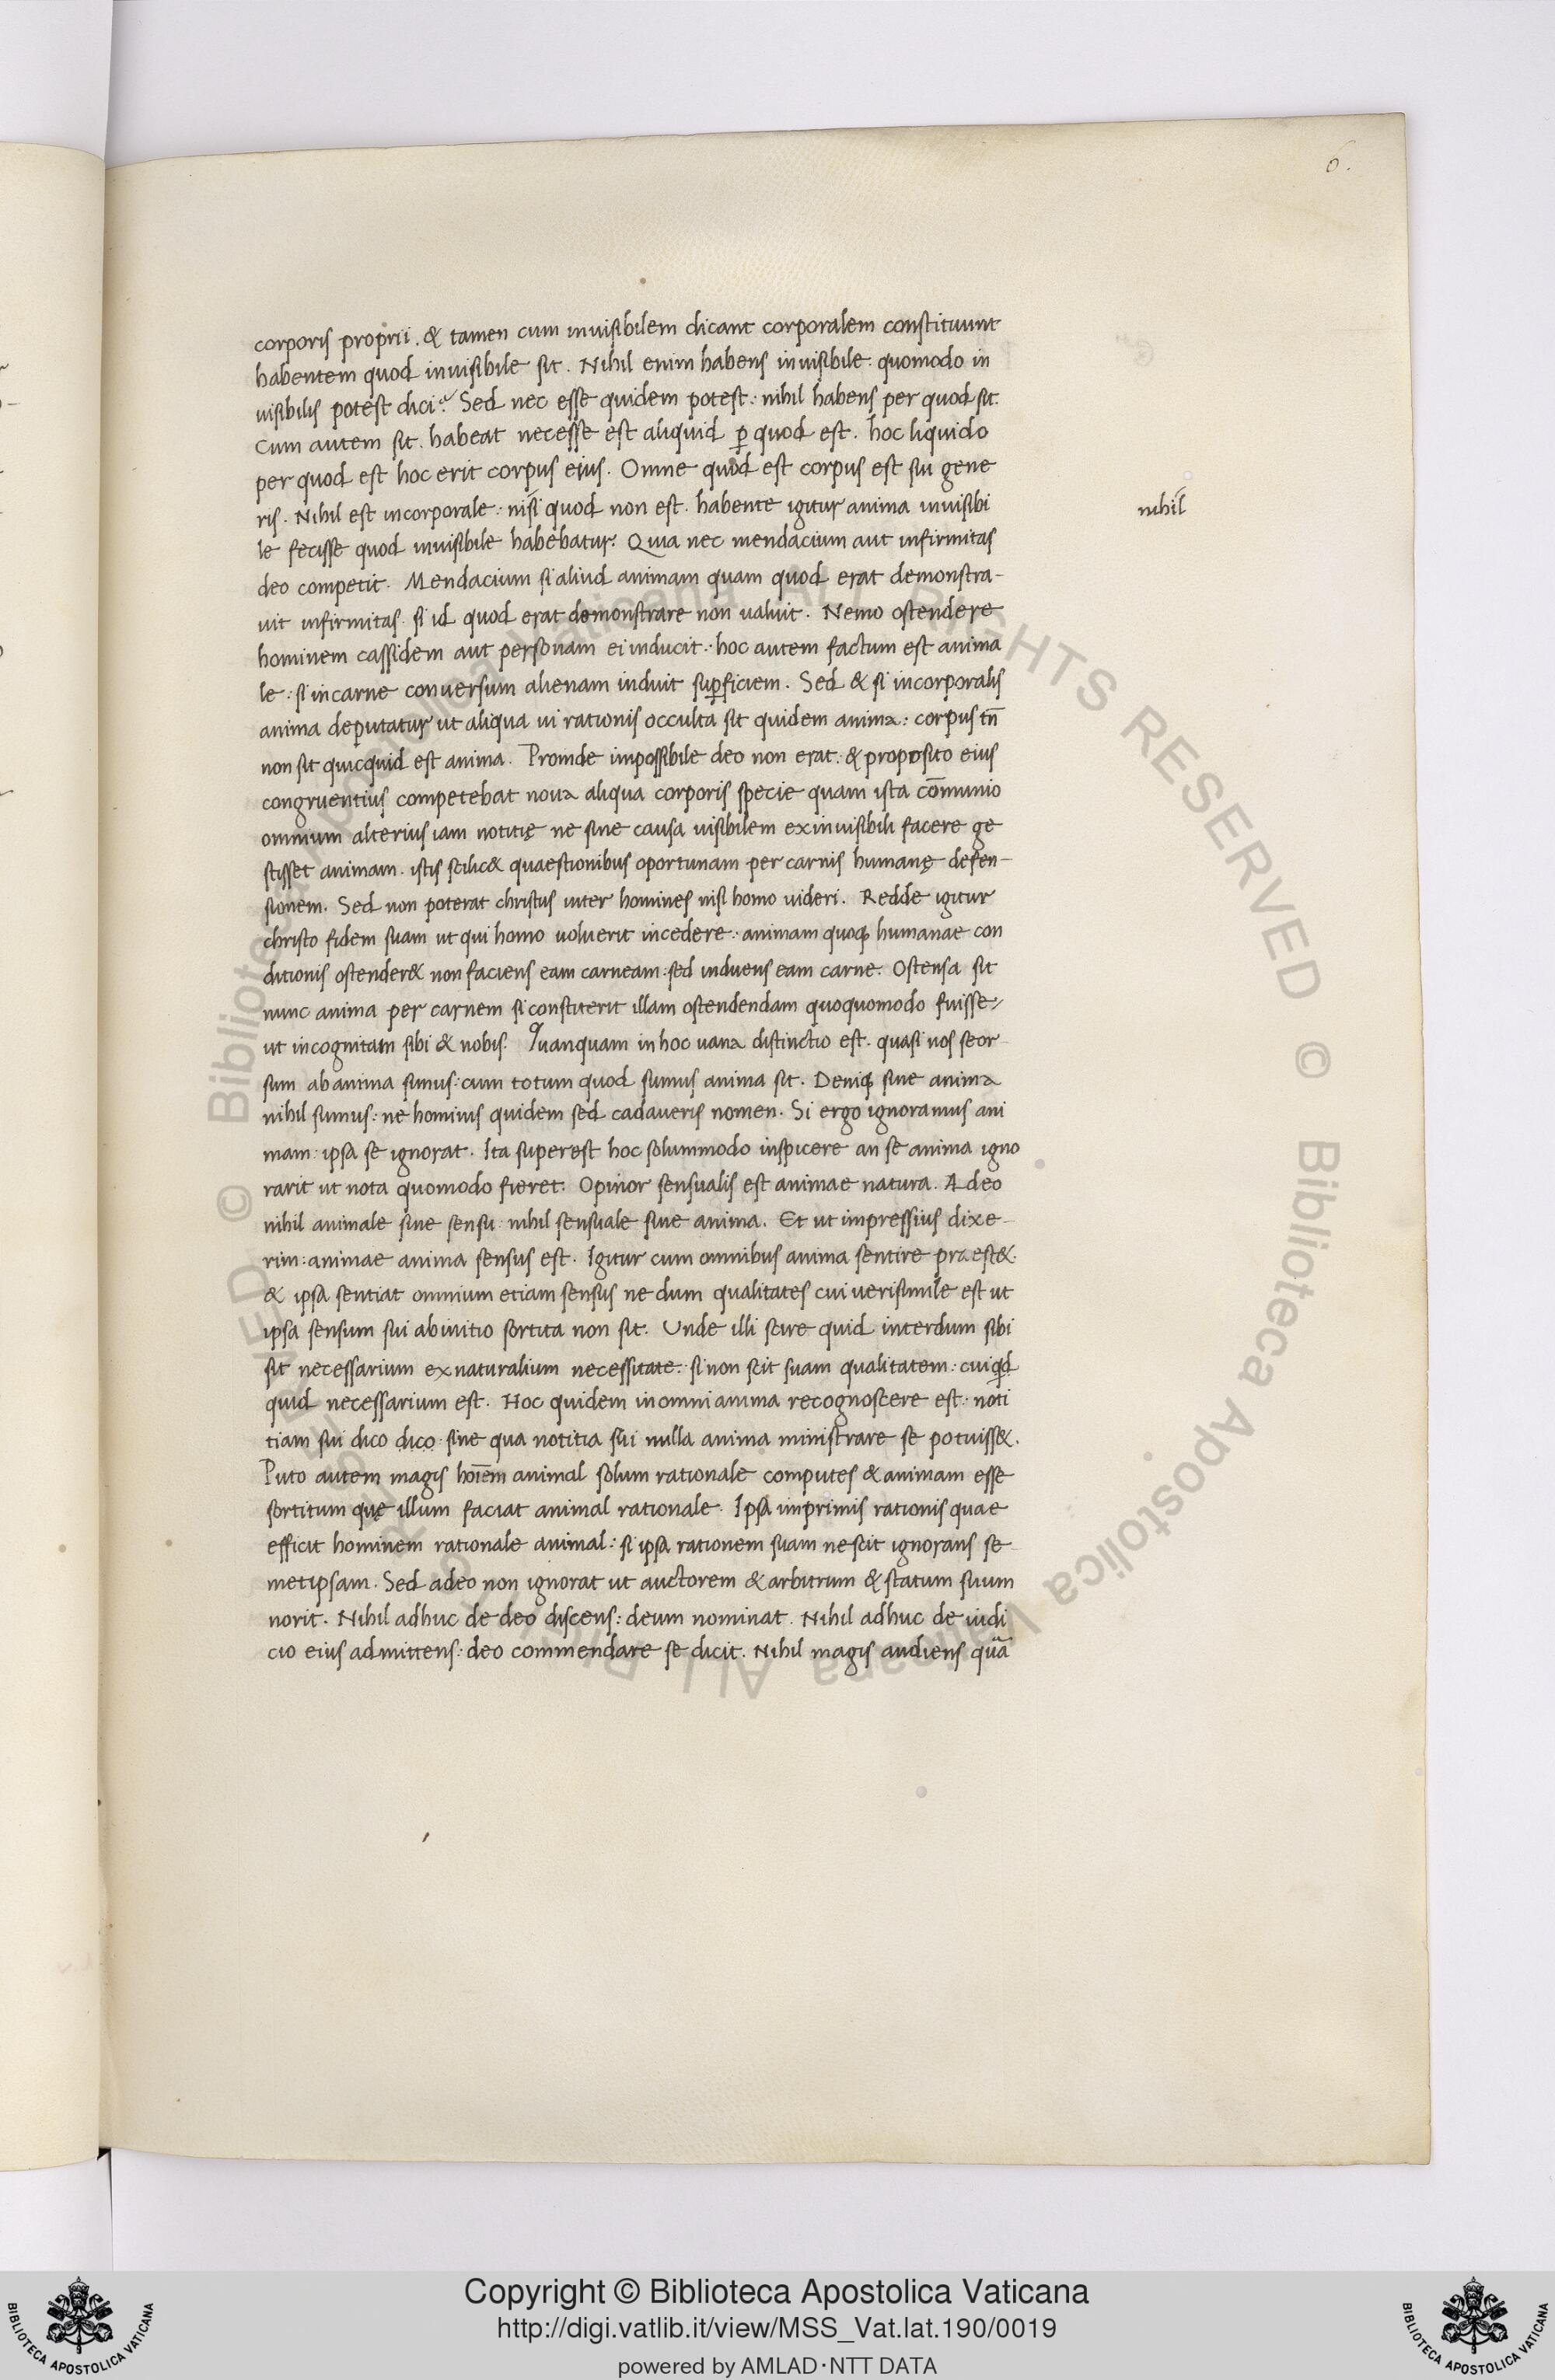 6.
corporis proprii. & tamen cum inuisibilem dicant corporalem constituunt
habentem quod inuisibile sit. Nihil enim habens inuisibile: quomodo in
uisibilis potest dici? Sed nec esse quidem potest: nihil habens per quod sit.
Cum autem sit. habeat necesse est aliquid ꝑ quod est. hoc liquido
per quod est hoc erit corpus eius. Omne quod est corpus est sui gene
ris. Nihil est incorporale: nisi quod non est. habente igitur anima inuisibi
nihil
le fecisse quod inuisibile habebatur? Quia nec mendacium aut infirmitas
deo competit. Mendacium si aliud animam quam quod erat demonstra-
uit infirmitas. si id quod erat demonstrare non ualuit. Nemo ostendere
hominem cassidem aut personam ei inducit: hoc autem factum est anima
le: si in carne conuersum alienam induit suꝑficiem. Sed & si incorporalis
anima deputatur ut aliqua ui rationis occulta sit quidem anima: corpus tn̄
non sit quicquid est anima. Proinde impossibile deo non erat: & proposito eius
congruentius competebat noua aliqua corporis specie quam ista cōmunio
omnium alterius iam notitię ne sine causa uisibilem ex inuisibili facere ge
stisset animam. istis scilic& quaestionibus oportunam per carnis humanę defen-
sionem. Sed non poterat christus inter homines nisi homo uideri. Redde igitur
christo fidem suam ut qui homo uoluerit incedere: animam quoqꝫ humanae con
ditionis ostender& non faciens eam carneam: sed induens eam carne. Ostensa sit
nunc anima per carnem si constiterit illam ostendendam quoquomodo fuisse
ut incognitam sibi & nobis. Quanquam in hoc uana distinctio est. quasi nos seor-
sum ab anima simus: cum totum quod sumus anima sit. Deniqꝫ sine anima
nihil sumus: ne hominis quidem sed cadaueris nomen. Si ergo ignoramus ani
mam: ipsa se ignorat. Ita superest hoc solummodo inspicere an se anima igno
rarit ut nota quomodo fieret. Opinor sensualis est animae natura. Adeo
nihil animale sine sensu: nihil sensuale sine anima. Et ut impressius dixe-
rim: animae anima sensus est. Igitur cum omnibus anima sentire praest&.
& ipsa sentiat omnium etiam sensus ne dum qualitates cui uerisimile est ut
ipsa sensum sui ab initio sortita non sit. Unde illi scire quid interdum sibi
sit necessarium ex naturalium necessitate: si non scit suam qualitatem: cui
quid necessarium est. Hoc quidem in omni anima recognoscere est: noti
tiam sui dico dico sine qua notitia sui nulla anima ministrare se potuiss&.
Puto autem magis hoīem animal solum rationale computes & animam esse
sortitum quę illum faciat animal rationale. Ipsa imprimis rationis quae
efficit hominem rationale animal: si ipsa rationem suam nescit ignorans se
metipsam. Sed adeo non ignorat ut auctorem & arbitrum & statum suum
norit. Nihil adhuc de deo discens: deum nominat. Nihil adhuc de iudi
cio eius admittens: deo commendare se dicit. Nihil magis audiens quā
© Biblioteca Apostolica Vaticana ALL RIGHTS RESERVED
© Biblioteca Apostolica Vaticana ALL RIGHTS RESERVED
Copyright © Biblioteca Apostolica Vaticana
http://digi.vatlib.it/view/MSS_Vat.lat.190/0019
powered by AMLAD·NTT DATA
BIBLIOTECA APOSTOLICA VATICANA
BIBLIOTECA APOSTOLICA VATICANA